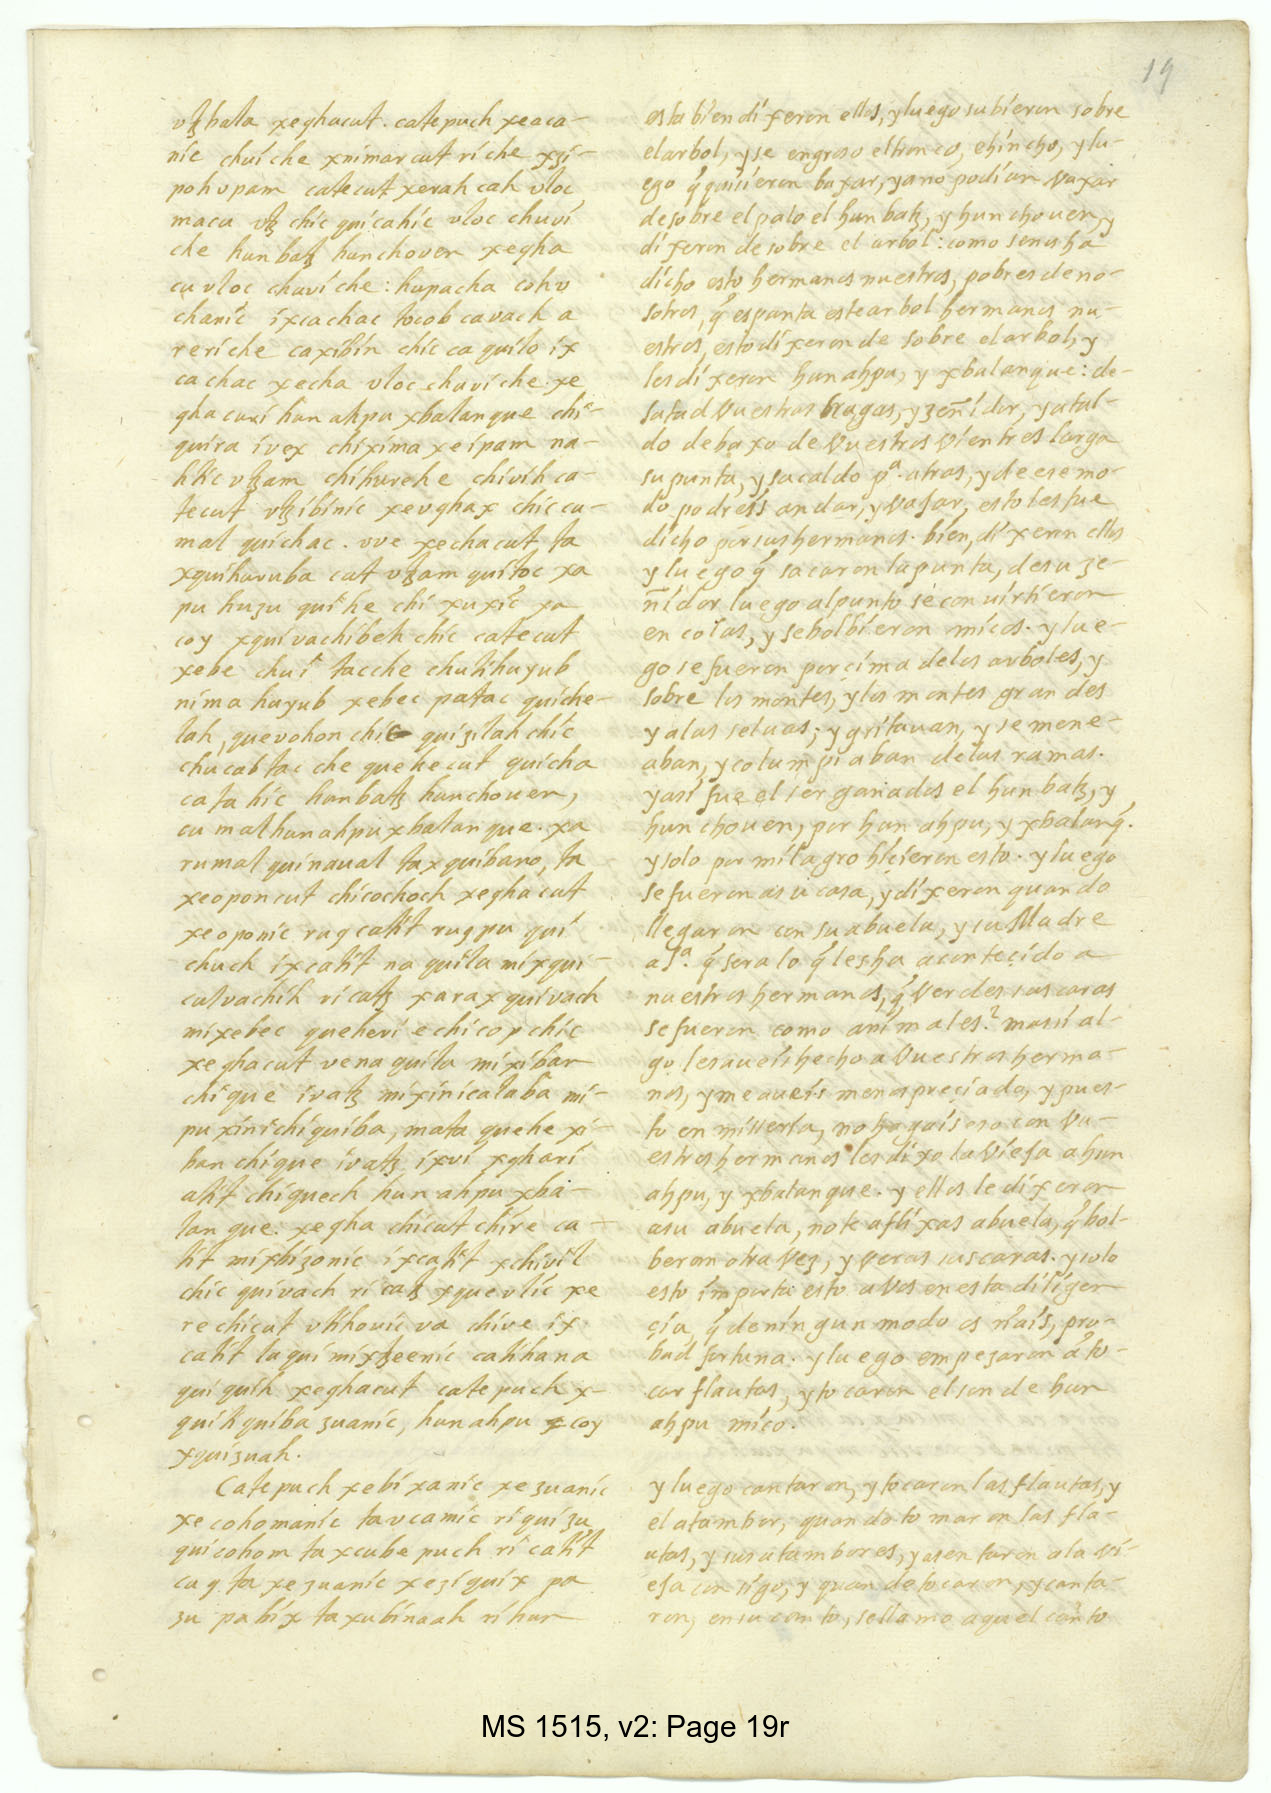 19
vtzbala xeghacut. catepuch xeaca-
nic chuiche xnimarcut riche xzi-
pohvpam catecut xerah cah vloc
macu vtz chic quicahic vloc chuvi
che hunbatz hunchouen xegha
cu vloc chuviche: hupacha cohv
chanic ixcachac tocob cavach a
reriche caxibin chic ca quilo ix
cachac xecha vloc chuviche. xe
ghacuri hunahpu xbalanque chi-
quira ivex chixima xeipam na-
htic vtzam chihurehe chivih ca-
tecut vtzibinic xevghax chic cu-
mal quichac. ove xechacut ta
xquiharuba cut vtzam quitoc xa
pu huzu quihe chi xuxic xa
coy xquivachibeh chic catecut
xebe chui tacche chutihuyub
nima huyub xebec patac quiche-
lah, quevohon chic quizilah chic
chucabtac che quehecut quicha
catahic hunbatz hunchouen,
cumal hunahpu xbalanque. xa
rumal quinaual taxquibano, ta
xeoponcut chicochoch xeghacut
xeoponic rug catit rug pu qui
chuch ixcatit na quila mixqui-
culvachih ricatz xarax quivach
mixebec queheri e chicop chic
xeghacut vena quila mixiban
chique ivatz mixinicataba mi-
puxinichiquiba, mata quehe xi-
ban chique ivatz ixvi xghari
atit chiquech hunahpu xba-
lanque: xegha chicut chire ca-
tit mixbizonic ixcatit xchivil
chic quivach ri catz xquevlic xe
re chicut vtihouic va chive ix
catit laqui mixtzeenic catihana
quiquih xeghacut catepuch x-
quitiquiba zuanic, hunahpu coy
xquizuah.
Catepuch xebixanic xezuanic
xecohomanic tavcamic riquizu
quicohom taxcube puch ri catit
cug. ta xezuanic xeziquix pa
zu pabix taxubinaah ri hun
esta bien dixeron ellos, y luego subieron sobre
el arbol, y se engroso el tronco, e hincho, y lu-
ego q̃ quisieron baxar, ya no podian vaxar
de sobre el palo el hun batz, y hun chouen, y
dixeron de sobre el arbol: como se nos ha
dicho esto hermanos nuestros, pobres de no-
sotros, q̃ espanta este arbol hermanos nu-
estros, esto dixeron de sobre el arbol, y
les dixeron hun ahpu, y xbalanque: de-
satad vuestras bragas, y zeñidor, y atal-
do debaxo de vuestros vientres larga
su punta, y sacaldo pª. atras, y de ese mo-
do podreis andar, y vajar, esto les fue
dicho por sus hermanos. bien, dixeron ellos
y luego q̃ sacaron la punta, de su ze-
ñidor luego al punto se convirtieron
en colas, y se bolbieron micos. y lue-
go se fueron por cima de los arboles, y
sobre los montes, y los montes grandes
y a las seluas; y gritauan, y se mene-
aban, y columpiaban de las ramas.
y asi fue el ser ganados el hun batz, y
hun chouen, por hun ahpu, y xbalanq̃.
y solo por milagro hicieron esto. y luego
se fueron a su casa, y dixeron quando
llegaron con su abuela, y su Madre
a Sª. q̃ sera lo q̃ les ha acontecido a
nuestros hermanos, q̃ verdes sus caras
se fueron como animales? massi al-
go les aueis hecho a vuestros herma-
nos, y me aueis menospreciado, y pues-
to en miseria, no hagais eso con vu-
estros hermanos les dixo la vieja a hun
ahpu, y xbalanque. y ellos le dixeron
a su abuela, no te aflixas abuela, q̃ bol-
beran otra vez, y veras sus caras. y solo
esto importa esto a vos en esta diligen-
çia, q̃ de ningun modo os riais, pro-
bad fortuna. y luego empezaron a to-
car flautas, y tocaron el son de hun
ahpu mico.
y luego cantaron, y tocaron las flautas, y
el atambor, quando tomaron las fla-
utas, y sus atambores, y asentaron a la vi-
eja consigo, y quando tocaron, y canta-
ron, en su canto, se llamo aquel canto
MS 1515, v2: Page 19r